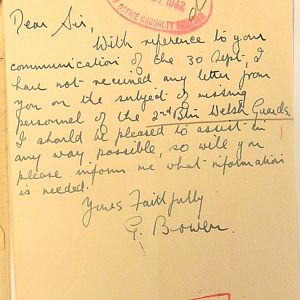 1942
OFFICE CASUALTY
Dear Sir,
With reference to your
communication of the 30 Sept, I
have not received any letter from
you on the subject of missing
personnel of the 2nd Btn Welsh Guards.
I should be pleased to assist in
any way possible, so will you
please inform me what information
is needed.
Yours Faithfully
G. Bowen.